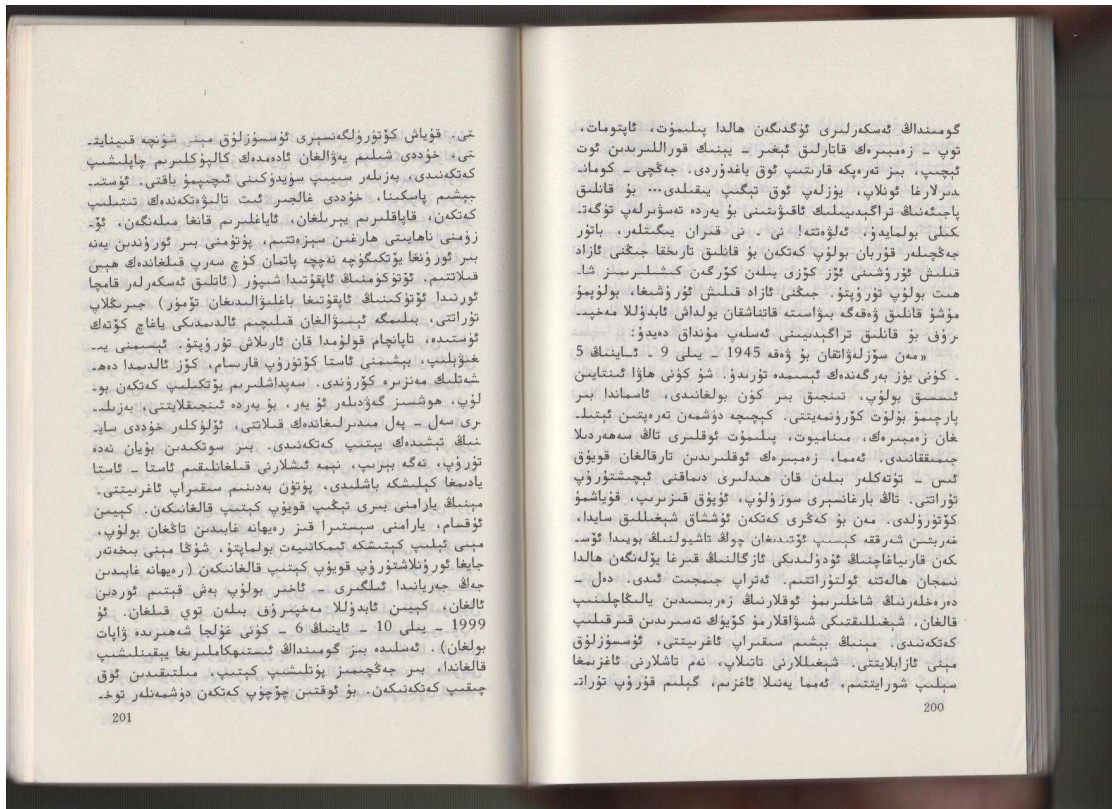 گومىنداڭ ئەسكەرلىرى ئۈگدىگەن ھالدا پىلىمۇت، ئاپتومات،
توپ ـ زەمبىرەك قاتارلىق ئېغىر ـ يېنىك قوراللىرىدىن ئوت
ئېچىپ، بىز تەرەپكە قارىتىپ ئوق ياغدۇردى. جەڭچى ـ كومان-
دىرلارغا ئوتلاپ، يۈزلەپ ئوق تېگىپ يىقىلدى... بۇ قانلىق
پاجىئەنىڭ تراگېدىيىلىك ئاقىۋىتىنى بۇ يەردە تەسۋىرلەپ تۈگەت-
كىلى بولمايدۇ، ئەلۋەتتە! نى ـ نى قىران يىگىتلەر، باتۇر
جەڭچىلەر قۇربان بولۇپ كەتكەن بۇ قانلىق تارىخقا جىڭنى ئازاد
قىلىش ئۇرۇشىنى ئۆز كۆزى بىلەن كۆرگەن كىشىلىرىمىز شا-
ھىت بولۇپ تۇرۇپتۇ. جىڭنى ئازاد قىلىش ئۇرۇشىغا، بولۇپمۇ
مۇشۇ قانلىق ۋەقەگە بىۋاسىتە قاتناشقان يولداش ئابدۇللا مەخپى-
رۇف بۇ قانلىق تراگېدىيىنى ئەسلەپ مۇنداق دەيدۇ:
«مەن سۆزلەۋاتقان بۇ ۋەقە 1945 ـ يىلى 9 ـ ئاينىڭ 5
ـ كۈنى يۈز بەرگەندەك ئېسىمدە تۇرىدۇ. شۇ كۈنى ھاۋا ئىنتايىن
ئىسسىق بولۇپ، تىنجىق بىر كۈن بولغانىدى، ئاسماندا بىر
پارچىمۇ بۇلۇت كۆرۈنمەيتتى. كېچىچە دۈشمەن تەرەپتىن ئېتىل-
غان زەمبىرەك، مىناميوت، پىلىمۇت ئوقلىرى تاڭ سەھەردىلا
جىمىققانىدى. ئەمما، زەمبىرەك ئوقلىرىدىن تارقالغان قويۇق
ئىس ـ تۈتەكلەر بىلەن قان ھىدلىرى دىماقنى ئېچىشتۇرۇپ
تۇراتتى. تاڭ بارغانسېرى سۈزۈلۈپ، ئۇپۇق قىزىرىپ، قۇياشمۇ
كۆتۈرۈلدى. مەن بۇ كەڭرى كەتكەن ئۇششاق شېغىللىق سايدا،
غەربتىن شەرققە كېسىپ ئۆتىدىغان چوڭ تاشيولنىڭ بويىدا ئۆس-
كەن قارىياغاچنىڭ ئۇدۇلىدىكى ئازگالنىڭ قىرغا يۆلەنگەن ھالدا
نىمجان ھالەتتە ئولتۇراتتىم. ئەتراپ جىمجىت ئىدى. دەل ـ
دەرەخلەرنىڭ شاخلىرىمۇ ئوقلارنىڭ زەربىسىدىن يالىڭاچلىنىپ
قالغان، شېغىللىقتىكى شىۋاقلارمۇ كۆيۈك تەسىرىدىن قىرقىلىپ
كەتكەنىدى. مېنىڭ بېشىم سىقىراپ ئاغرىيتتى، ئۇسسۇزلۇق
مېنى ئازابلايتتى. شېغىللارنى تاتىلاپ، نەم تاشلارنى ئاغزىمغا
سېلىپ شورايتتىم، ئەمما يەنىلا ئاغزىم، گېلىم قۇرۇپ تۇرات-
200
تتى. قۇياش كۆتۈرۈلگەنسېرى ئۇسسۇزلۇق مېنى شۇنچە قىينايت-
تى، خۇددى شىلىم يەۋالغان ئادەمدەك كالپۇكلىرىم چاپلىشىپ
كەتكەنىدى، بەزىلەر سىيىپ سۈيدۈكىنى ئىچىپمۇ باقتى، ئۈستى-
بېشىم پاسكىنا، خۇددى غالجىر ئىت تالىۋەتكەندەك تىتىلىپ
كەتكەن، قاپاقلىرىم يېرىلغان، ئاياغلىرىم قانغا مىلەنگەن، ئۆ-
زۈمنى ناھايىتى ھارغىن سېزەتتىم، پۇتۇمنى بىر ئورۇندىن يەنە
بىر ئورۇنغا يۆتكىگۈچە نەچچە پاتمان كۈچ سەرپ قىلغاندەك ھېس
قىلاتتىم. ئۆتۈكۈمنىڭ ئاپقۇتىدا شىپۇر (ئاتلىق ئەسكەرلەر قامچا
ئورنىدا ئۆتۈكىنىڭ ئاپقۇتىغا باغلىۋالىدىغان تۆمۈر) جىرىڭلاپ
تۇراتتى، بىلىمگە ئېسىۋالغان قىلىچىم ئالدىمدىكى ياغاچ كۆتەك
ئۈستىدە، تاپانچام قولۇمدا قان ئارىلاش تۇرۇپتۇ. ئېسىمنى يى-
غىۋېلىپ، بېشىمنى ئاستا كۆتۈرۈپ قارىسام، كۆز ئالدىمدا دەھ-
شەتلىك مەنزىرە كۆرۈندى. سەپداشلىرىم يۆتكىلىپ كەتكەن بو-
لۇپ، ھوشسىز گەۋدىلەر ئۇ يەر، بۇ يەردە ئىنجىقلايتتى، بەزىلى-
رى سەل ـ پەل مىدىرلىغاندەك قىلاتتى، ئۆلۈكلەر خۇددى ساي-
نىڭ تېشىدەك يېتىپ كەتكەنىدى. بىر سوتكىدىن بۇيان نەدە
تۇرۇپ، نەگە بېرىپ، نېمە ئىشلارنى قىلغانلىقىم ئاستا ـ ئاستا
يادىمغا كېلىشكە باشلىدى، پۈتۈن بەدىنىم سىقىراپ ئاغرىيتتى.
مېنىڭ يارامنى بىرى تېڭىپ قويۇپ كېتىپ قالغانىكەن. كېيىن
ئۇقسام، يارامنى سېستىرا قىز رەيھانە غابىدىن تاڭغان بولۇپ،
مېنى ئېلىپ كېتىشكە ئىمكانىيەت بولماپتۇ، شۇڭا مېنى بىخەتەر
جايغا ئورۇنلاشتۇرۇپ قويۇپ كېتىپ قالغانىكەن (رەيھانە غابىدىن
جەڭ جەريانىدا ئىلگىرى ـ ئاخىر بولۇپ بەش قېتىم ئوردېن
ئالغان، كېيىن ئابدۇللا مەخپىرۇف بىلەن توي قىلغان. ئۇ
1999 ـ يىلى 10 ـ ئاينىڭ 6 ـ كۈنى غۇلجا شەھىرىدە ۋاپات
بولغان). ئەسلىدە بىز گومىنداڭ ئىستىھكاملىرىغا يېقىنلىشىپ
قالغاندا، بىر جەڭچىمىز پۇتلىشىپ كېتىپ، مىلتىقىدىن ئوق
چىقىپ كەتكەنىكەن. بۇ ئوقتىن چۆچۈپ كەتكەن دۈشمەنلەر توخ-
201